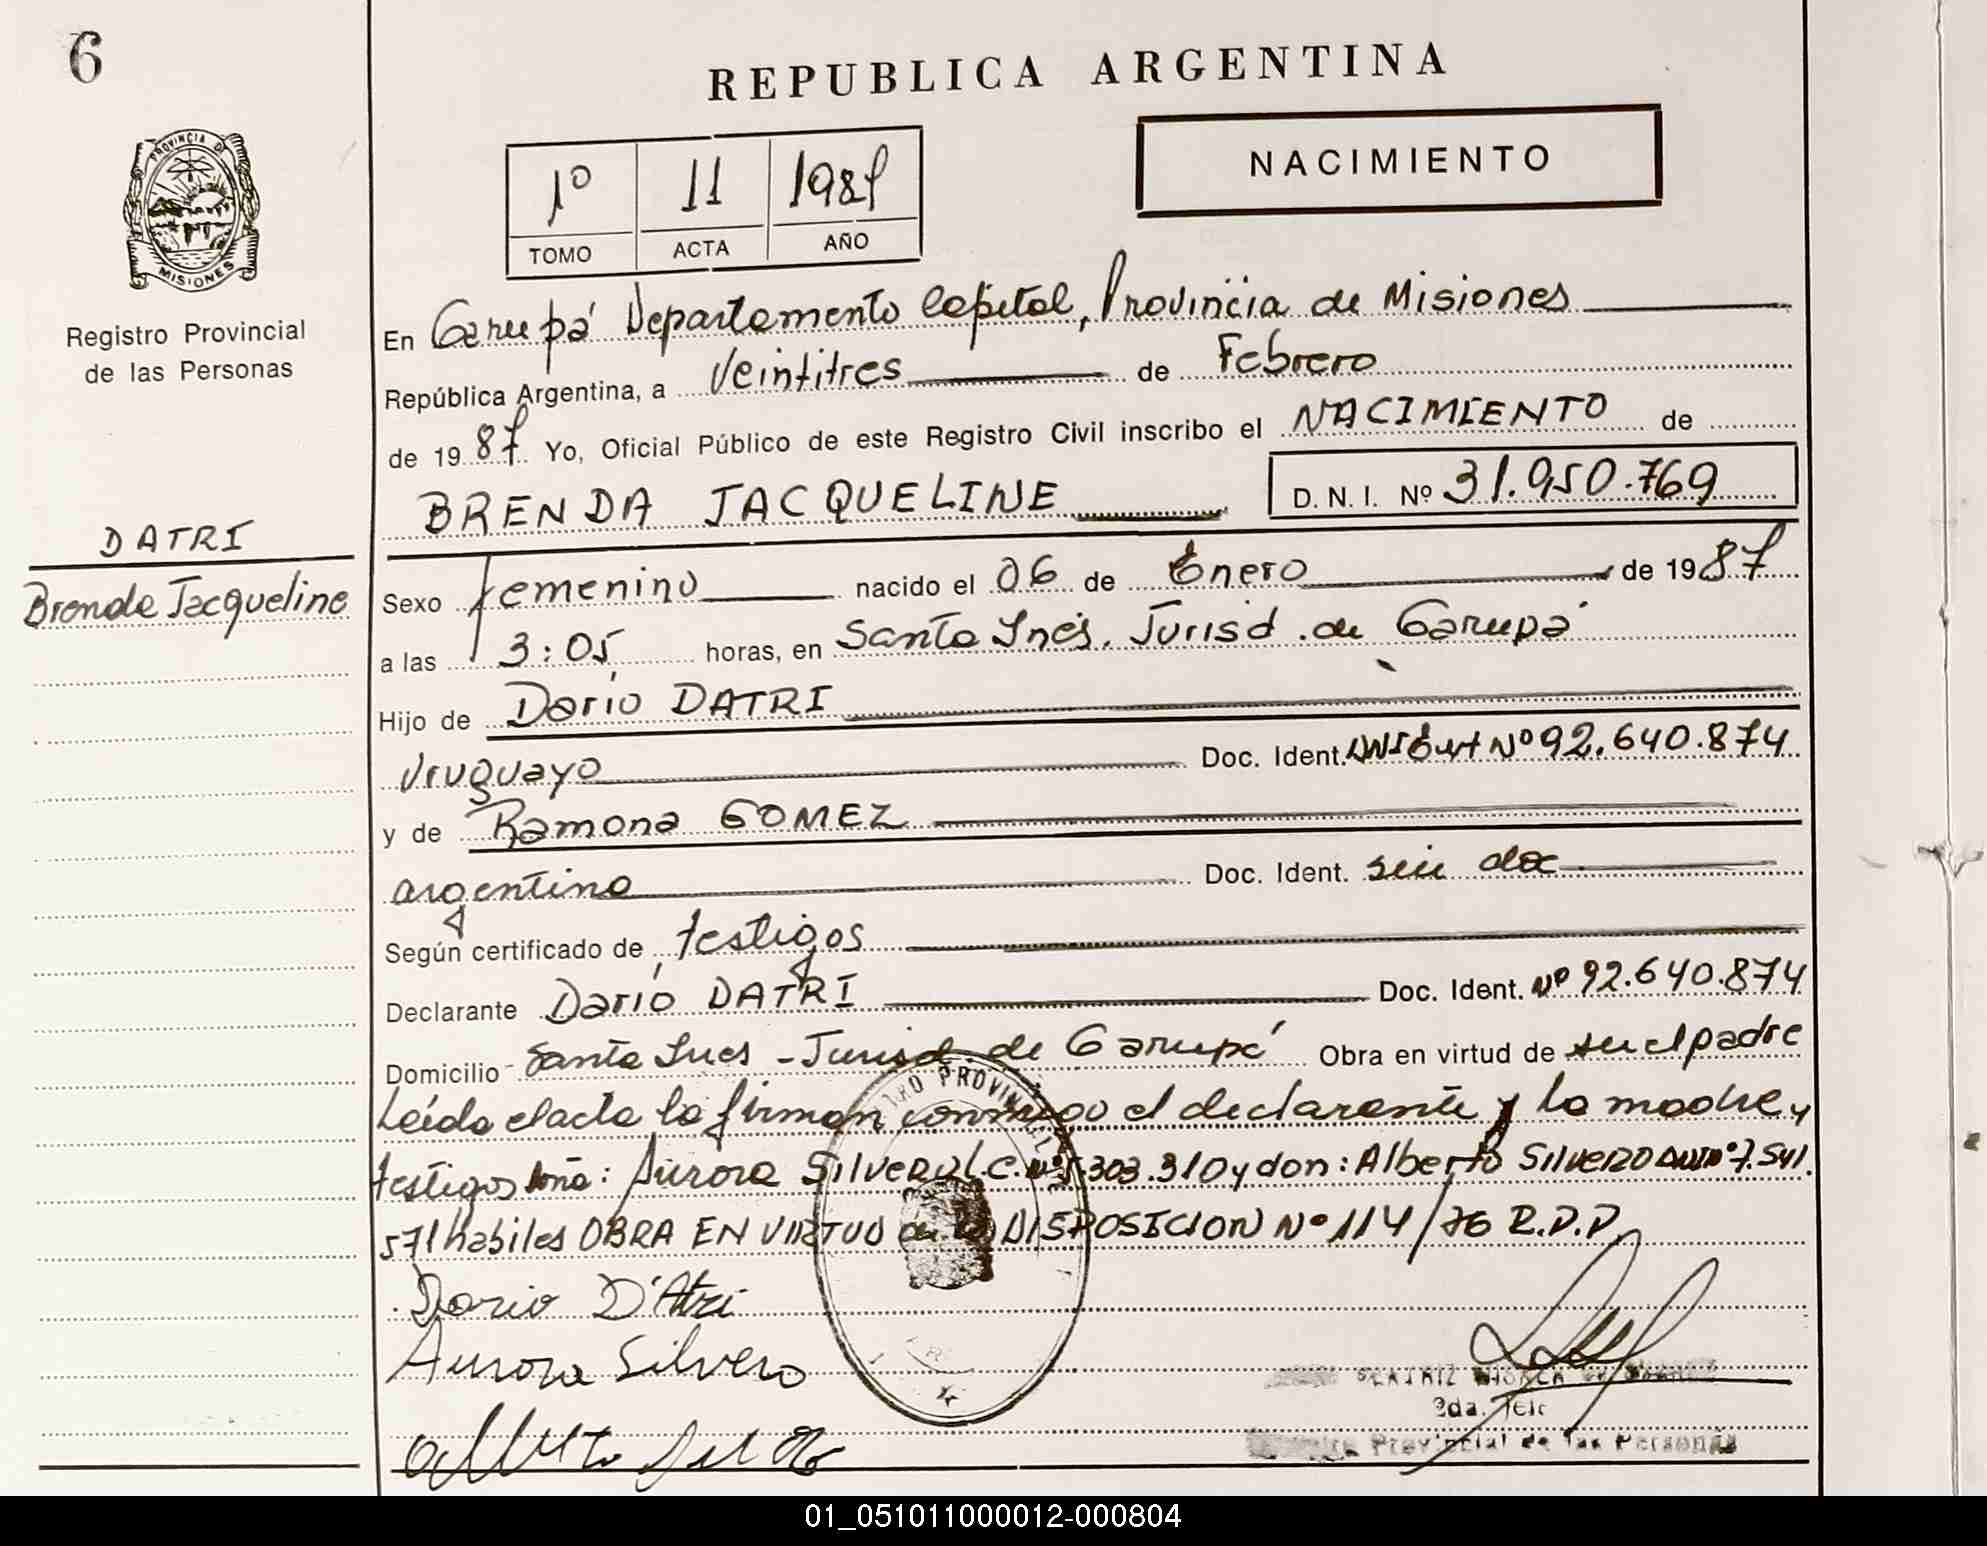 6
REPUBLICA ARGENTINA
PROVINCIA DE
MISIONES
1º 11 1987
TOMO ACTA AÑO
NACIMIENTO
Registro Provincial
de las Personas
En Garupá Departamento Capital, Provincia de Misiones
República Argentina, a Veintitres de Febrero
de 1987 Yo, Oficial Público de este Registro Civil inscribo el NACIMIENTO de
BRENDA JACQUELINE D. N. I. Nº 31.950.769
DATRI
Brenda Jacqueline
Sexo femenino nacido el 06 de Enero de 1987
a las 3:05 horas, en Santa Inés, Jurisd. de Garupá
Hijo de Dario DATRI
Uruguayo Doc. Ident. DNI Ext Nº 92.640.874
y de Ramona GOMEZ
argentina Doc. Ident. sin doc
Según certificado de testigos
Declarante Darío DATRI Doc. Ident. Nº 92.640.874
Domicilio Santa Ines - Jurisd. de Garupá Obra en virtud de ser el padre
Leída el acta la firman conmigo el declarante y la madre y
testigos doña: Aurora SILVERO L.C. Nº 5.303.310 y don: Alberto SILVERO DNI Nº 7.541.
571 habiles OBRA EN VIRTUD de la DISPOSICION Nº 114/76 R.D.P.
Dario D'Atri
Aurora Silvero
BEATRIZ
2da.
Provincial de las Personas
01_051011000012-000804